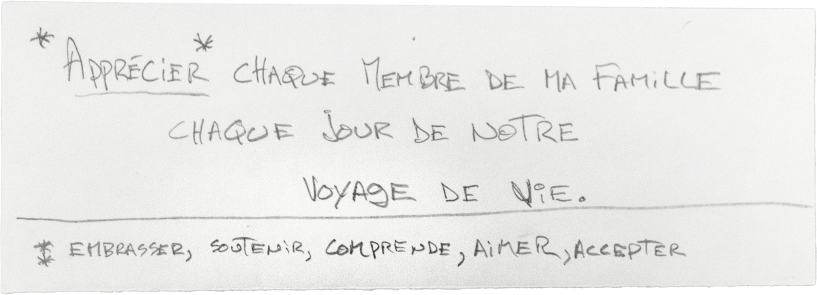 *APPRÉCIER* CHAQUE MEMBRE DE MA FAMILLE
CHAQUE JOUR DE NOTRE
VOYAGE DE VIE.
* EMBRASSER, SOUTENIR, COMPRENDE, AIMER, ACCEPTER